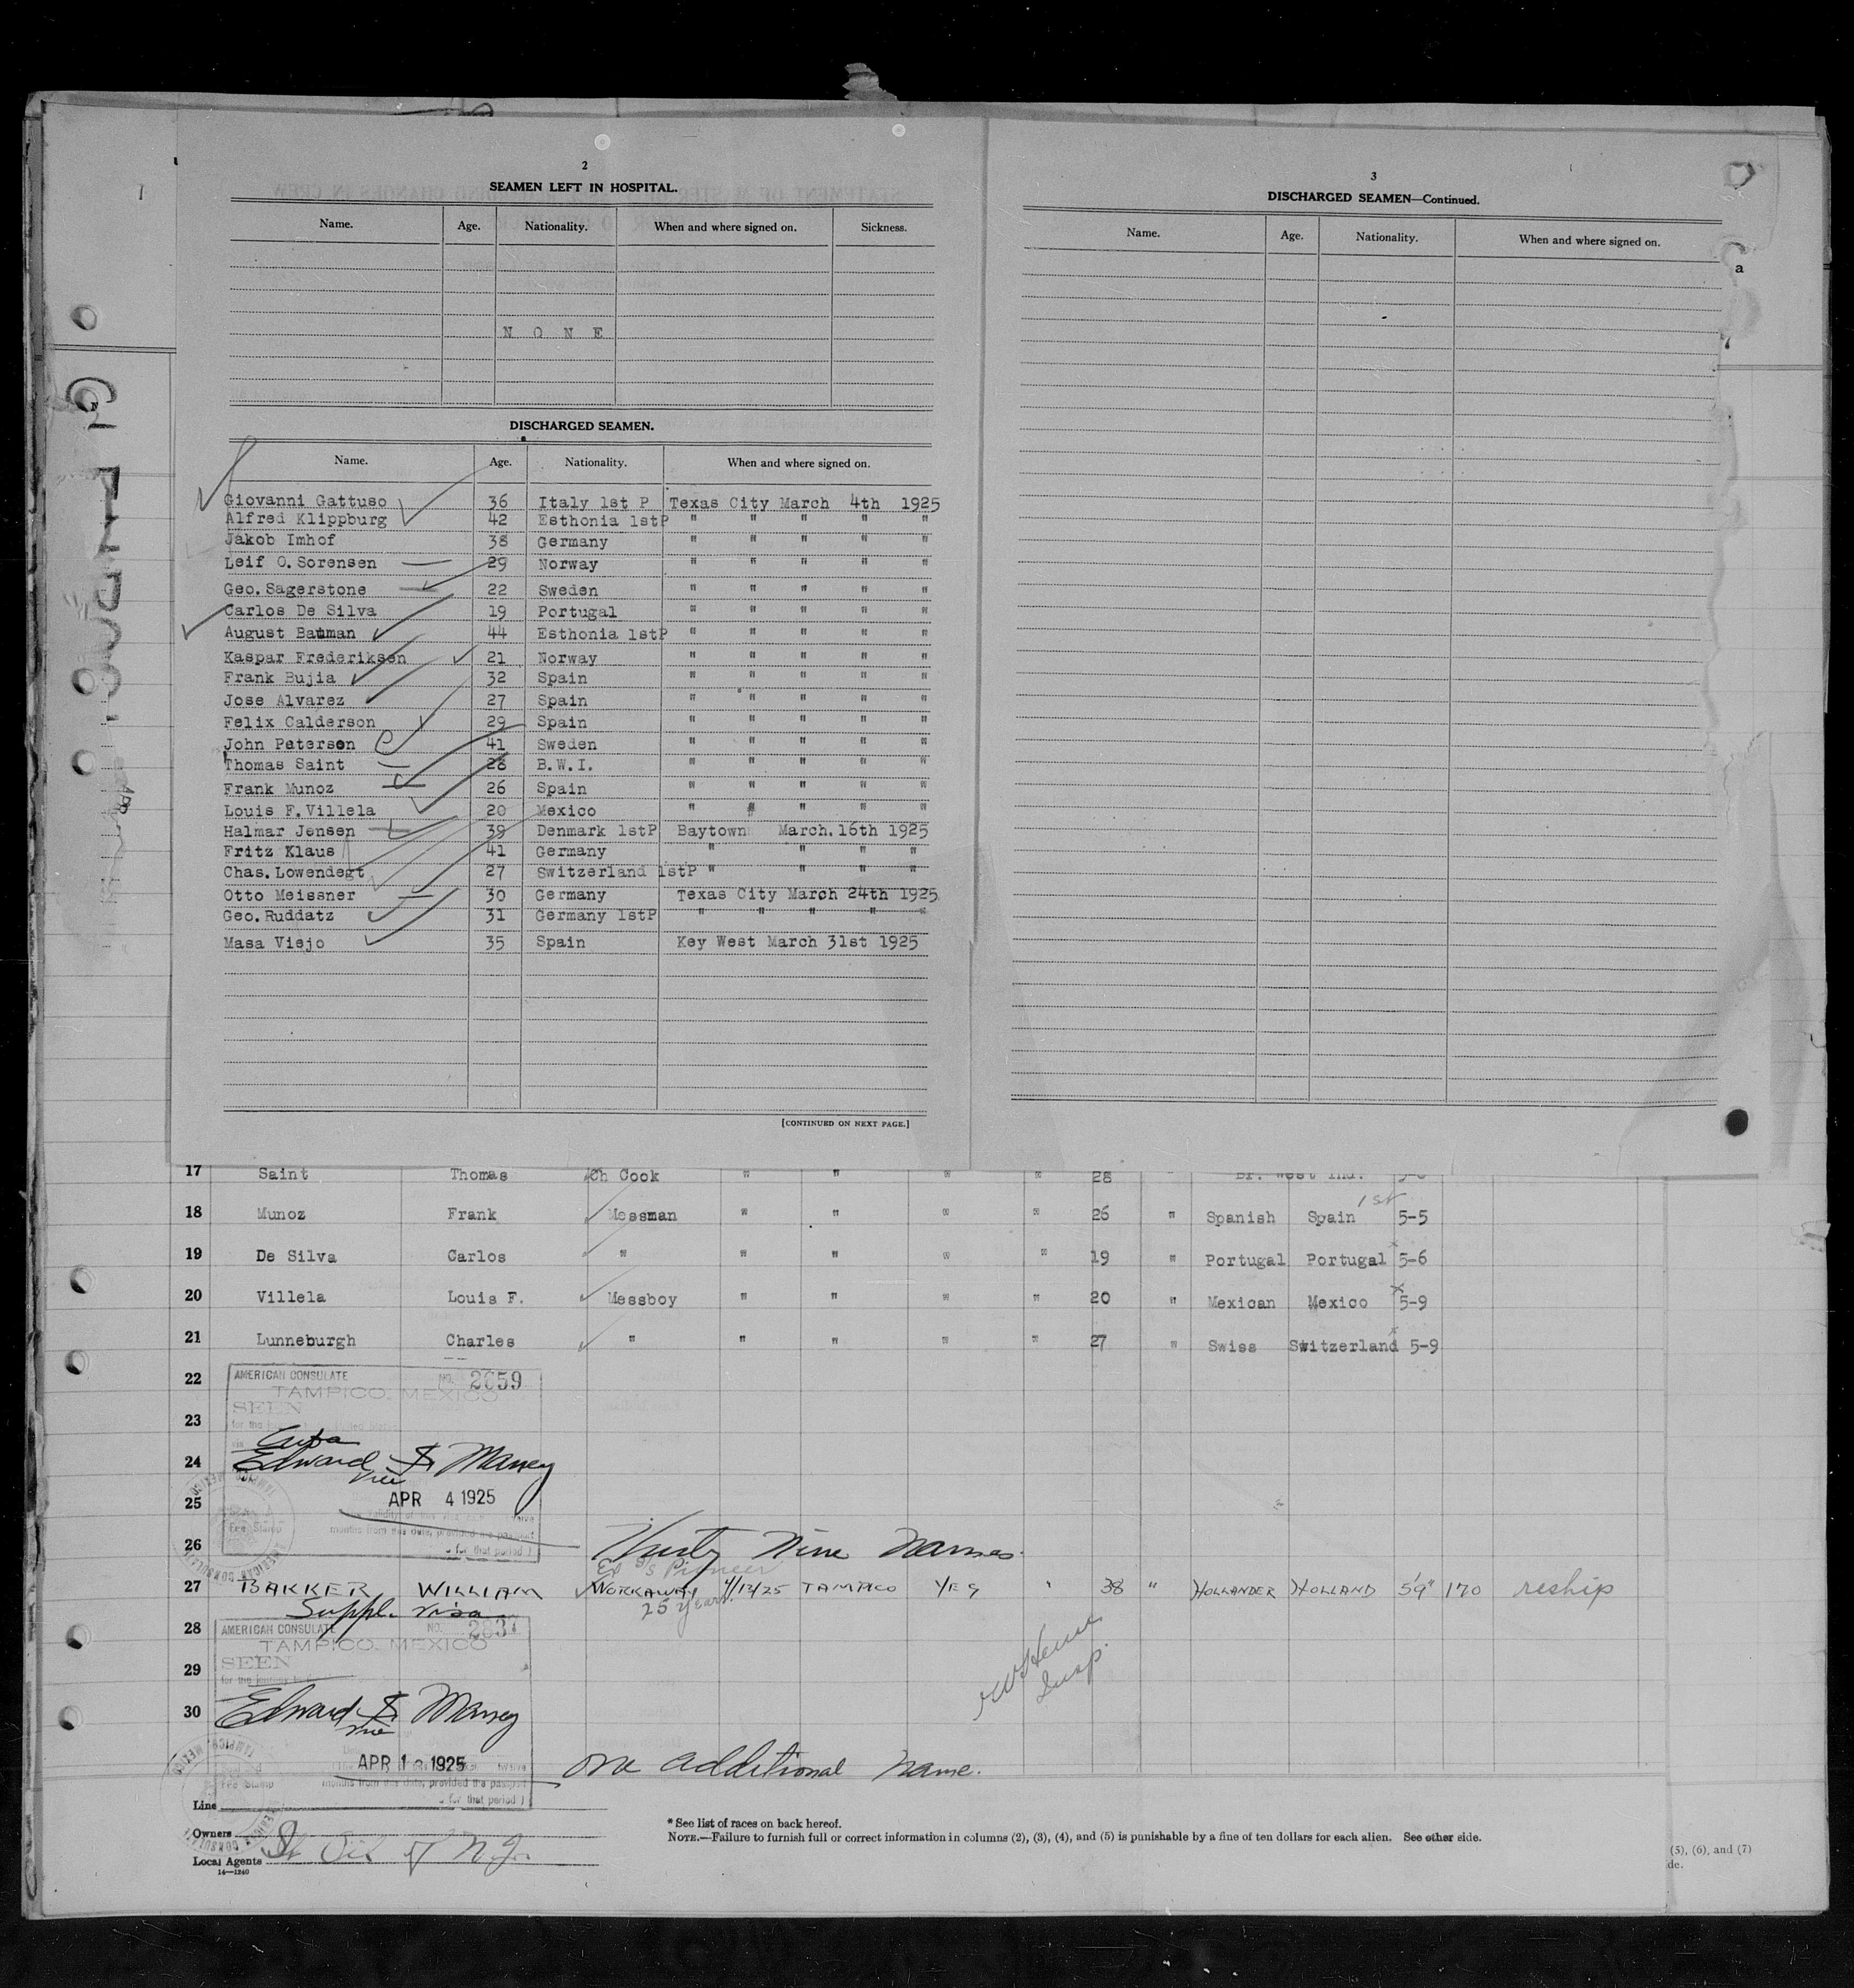 2
SEAMEN LEFT IN HOSPITAL.
Name. Age. Nationality. When and where signed on. Sickness.
N O N E
DISCHARGED SEAMEN.
Name. Age. Nationality. When and where signed on.
Giovanni Gattuso 36 Italy 1st P Texas City March 4th 1925
Alfred Klippburg 42 Esthonia 1stP " " " " "
Jakob Imhof 38 Germany " " " " "
Leif O.Sorensen 29 Norway " " " " "
Geo.Sagerstone 22 Sweden " " " " "
Carlos De Silva 19 Portugal " " " " "
August Batman 44 Esthonia 1stP " " " " "
Kaspar Frederiksen 21 Norway " " " " "
Frank Bujia 32 Spain " " " " "
Jose Alvarez 27 Spain " " " " "
Felix Calderson 29 Spain " " " " "
John Peterson 41 Sweden " " " " "
Thomas Saint 28 B.W.I. " " " " "
Frank Munoz 26 Spain " " " " "
Louis F.Villela 20 Mexico " " " " "
Halmar Jensen 39 Denmark 1stP Baytown March.16th 1925
Fritz Klaus 41 Germany " " " "
Chas.Lowendegt 27 Switzerland 1stP " " " "
Otto Meissner 30 Germany Texas City March 24th 1925
Geo.Ruddatz 31 Germany 1stP " " " " "
Masa Viejo 35 Spain Key West March 31st 1925
[CONTINUED ON NEXT PAGE.]
3
DISCHARGED SEAMEN—Continued.
Name. Age. Nationality. When and where signed on.
a
17 Saint Thomas Ch Cook " " " " 28 " Br. West Ind.
18 Munoz Frank Messman " " " " 26 " Spanish Spain 1st 5-5
19 De Silva Carlos " " " " " 19 " Portugal Portugal x 5-6
20 Villela Louis F. Messboy " " " " 20 " Mexican Mexico x 5-9
21 Lunneburgh Charles " " " " " 27 " Swiss Switzerland x 5-9
22
AMERICAN CONSULATE NO. 2659
TAMPICO, MEXICO
23
SEEN
24
Edward S. Maney
Vice
25
APR 4 1925
months from this date, provided the passport
for that period )
Fee Stamp
26
Thirty Nine Names.
Ex S/S Pioneer
27 BAKKER WILLIAM WORKAWAY 4/12/25 TAMPICO YES " 38 " HOLLANDER HOLLAND 5'9" 170 reship
25 years.
Suppl. visa
28
AMERICAN CONSULATE NO. 2837
TAMPICO, MEXICO
29
SEEN
for the journey to
30
Edward S. Maney
Vice
Insp.
APR 1 1925
twelve
months from this date, provided the passport
for that period )
Fee Stamp
one additional name.
Line
Owners
Local Agents St Oil of N.J.
14—1240
*See list of races on back hereof.
NOTE.—Failure to furnish full or correct information in columns (2), (3), (4), and (5) is punishable by a fine of ten dollars for each alien. See other side.
(5), (6), and (7)
ide.